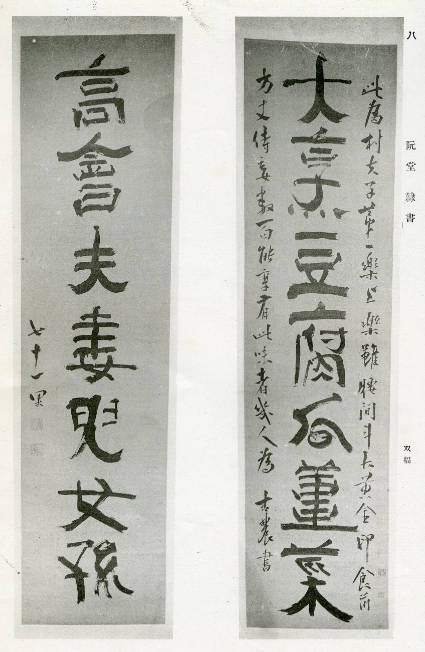 八
阮堂 隷書
双幅
此爲村夫子苐一樂上樂雖腰間斗大黃金印食前
大烹豆腐瓜薑菜
方丈侍妾數百能享有此味者幾人爲 古農書
高會夫妻兒女孫
七十一果